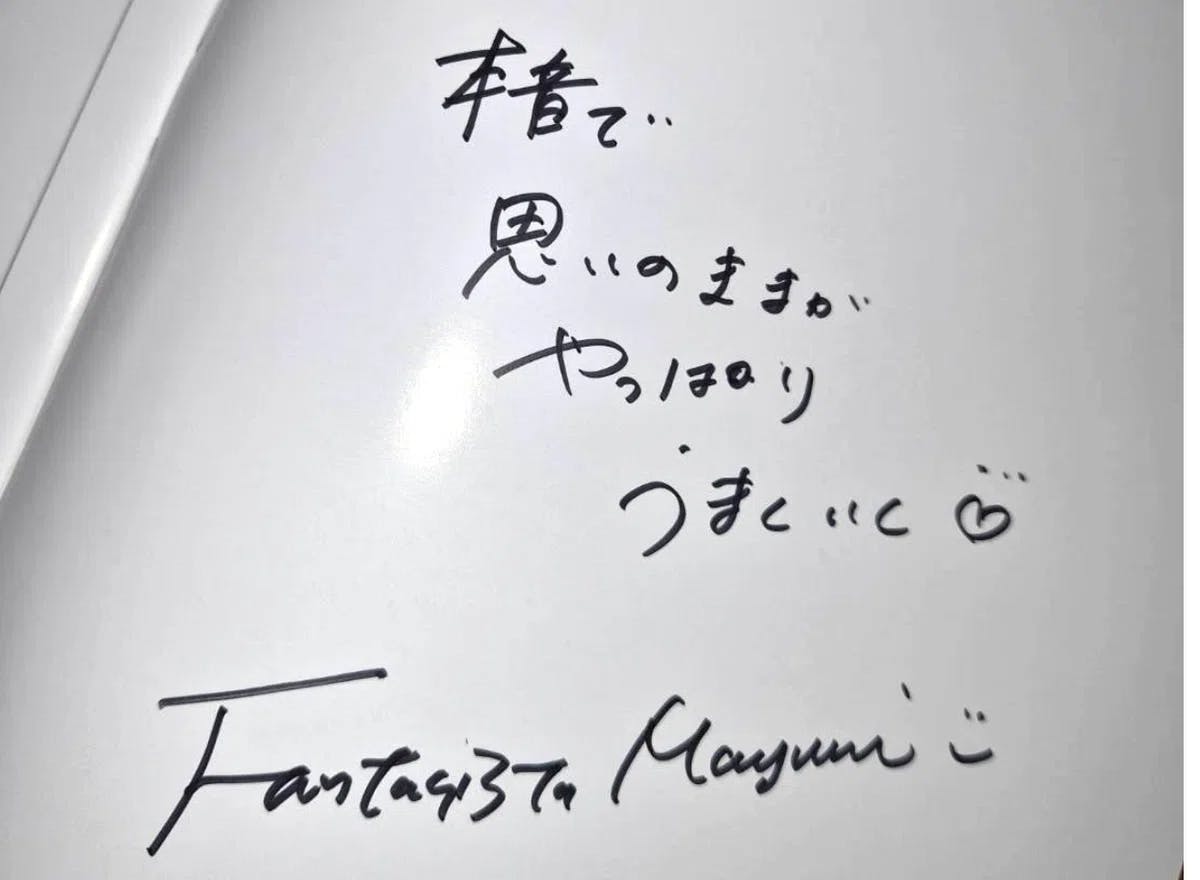 本音で
思いのままが
やっぱり
うまくいく♡
Fantagista Mayumi